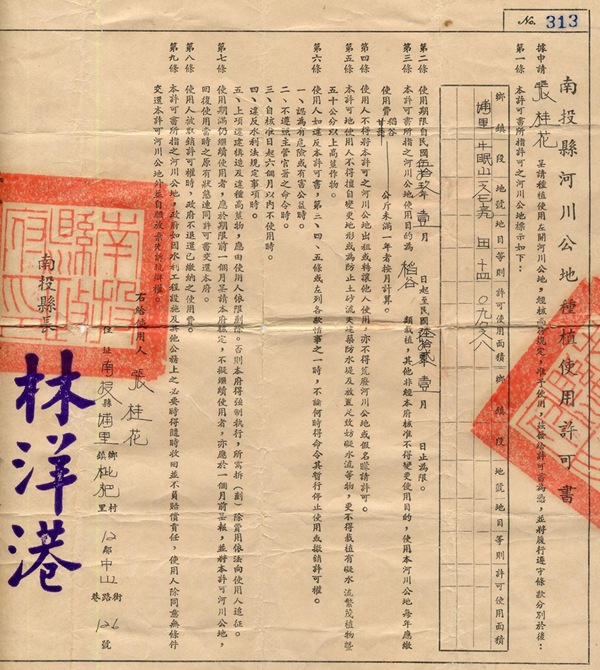 No. 313
南投縣河川公地種植使用許可書
據申請 張桂花 呈請種植使用左開河川公地,經核 規定,准予使用,核發公許可書為憑,並將履行遵守條款分別於後:
第一條 本許可書所指許可之河川公地標示如下:
鄉鎮 段 地號 地目 等則 許可使用面積 鄉鎮 段 地號 地目 等則 許可使用面積
埔里 牛眠山 田 十四
第二條 使用期限自民國伍拾玖年壹月 日起至民國陸拾貳年壹月 日止為限。
第三條 本許可書所指之河川公地使用目的為 稻谷 類栽植,其他非經本府核准不得變更使用目的,使用本河川公地每年應繳
使用費 稻谷 甘藷 公斤未滿一年者按月計算。
第四條 使用人不得將本許可之河川公地出租或轉讓他人使用,亦不得荒廢河川公地或假名矇請許可。
第五條 本許可地使用人不得擅自變更地形或為防止土砂流失建築防水堤及放置足致妨礙水流等物,更不得栽植有礙水流繁茂植物暨
五十公分以上高莖作物。
第六條 使用人如違反本許可書,第二、四、五條或左列各款情事之一時,不論何時得命令其暫行停止使用或撤銷許可權。
一、認為有危險或有害公益時。
二、不遵照主管官署之命令時。
三、自核准日起六個月以內不使用時。
四、違反水利法規定事項時。
五、上項違建構造及違種高莖物,應由使用人依限剷除。否則本府得強制執行,所需拆(剷)除費用依法向使用人追征。
第七條 使用期滿仍繼續使用者,應於期限前一個月呈請本府核定,不擬繼續使用者,亦應於一個月前呈報,並將本許可河川公地,
回復使用當時之原有狀態連同許可書交還本府。
第八條 使用人被取銷許可權時,政府不退還已繳納之使用費。
第九條 本許可書所指之河川公地,政府如因水利工程設施及其他公務上之必要時得隨時收回並不負賠償責任,使用人除同意無條件
交還本許可河川公地外並自願放棄先訴抗辯權。
右給使用人 張桂花
住址 南投縣 埔里 鄉鎮 枇杷 村里 12 鄰 中山 街路巷 126 號
南投縣長 林洋港